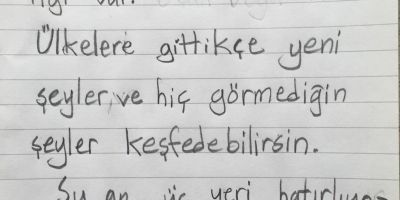 Ülkelere gittikçe yeni
şeyler, ve hiç görmediğin
şeyler keşfedebilirsin.
Şu an üç yeri